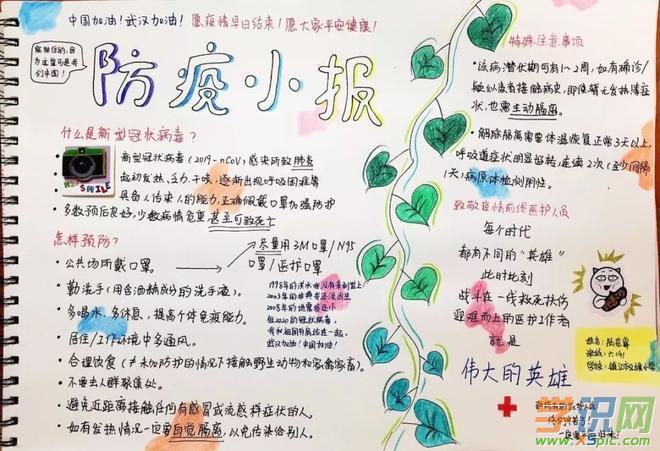 中国加油!武汉加油! 愿疫情早日结束!愿大家平安健康!
防疫小报
们中国!
什么是新型冠状病毒?
SMILE
新型冠状病毒(2019-nCoV)感染所致肺炎
起初发热、乏力、干咳,逐渐出现呼吸困难等
具备人传染人的能力,正确佩戴口罩加强防护
多数预后良好,少数病情危重,甚至可致死亡
怎样预防?
• 公共场所戴口罩。
尽量用3M口罩/N95
口罩/医护口罩
• 勤洗手(用含酒精成分的洗手液)。
• 多喝水、多休息,提高个体免疫能力。
• 居住/工作环境中多通风。
• 合理饮食(不未加防护的情况下接触野生动物和家禽家畜)。
• 不要去人群聚集处。
• 避免近距离接触任何有感冒或流感样症状的人。
• 如有发热情况一定要自觉隔离,以免传染给别人。
武汉加油!中国加油!
特殊注意事项
• 该病潜伏期可有1~2周,如有确诊/
疑似患者接触病史,即使暂无发热等症
状,也需主动隔离。
• 解除隔离需要体温恢复正常3天以上,
呼吸道症状明显好转,连续2次(至少间隔
1天)病原体检测阴性。
致敬疫情前线医护人员
每个时代
都有不同的“英雄”
此时此刻
战斗在一线救死扶伤
迎难而上的医护工作者
就是
伟大的英雄
学识网
www.xspic.com